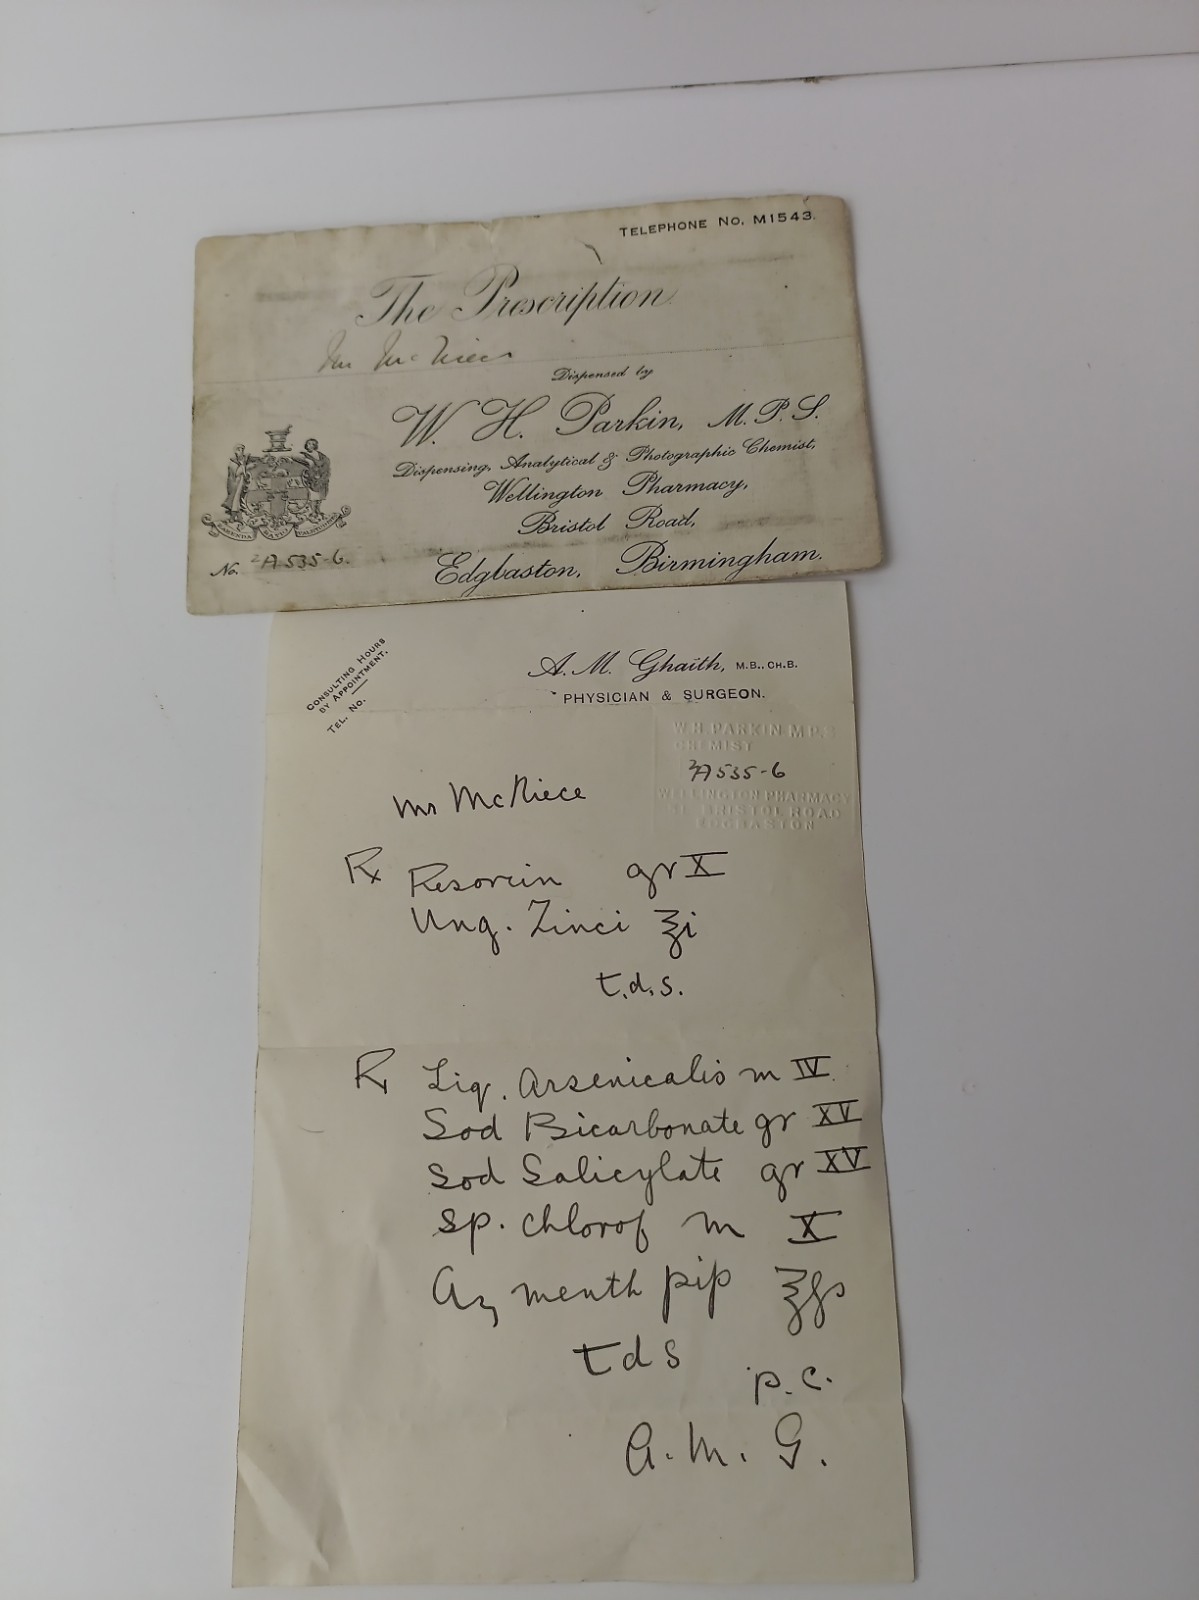 TELEPHONE NO. M1543.
The Prescription
Mr McNiece
Dispensed by
W. H. Parkin, M.P.S.
Dispensing, Analytical & Photographic Chemist,
Wellington Pharmacy,
Bristol Road,
Edgbaston, Birmingham.
No. A535-6.
CONSULTING HOURS
BY APPOINTMENT.
TEL. NO.
A. M. Ghaith, M.B., CH.B.
PHYSICIAN & SURGEON.
W H PARKIN M.P.S
CHEMIST
A535-6
WELLINGTON PHARMACY
BRISTOL ROAD
EDGBASTON
Mr McNiece
Rx Resorcin gr X
Ung. Zinci ℥i
t.d.s.
Rx Liq. Arsenicalis m IV
Sod Bicarbonate gr XV
Sod Salicylate gr XV
Sp. chlorof m X
Aq menth pip ℥fs
t d s
p.c.
A. M. G.